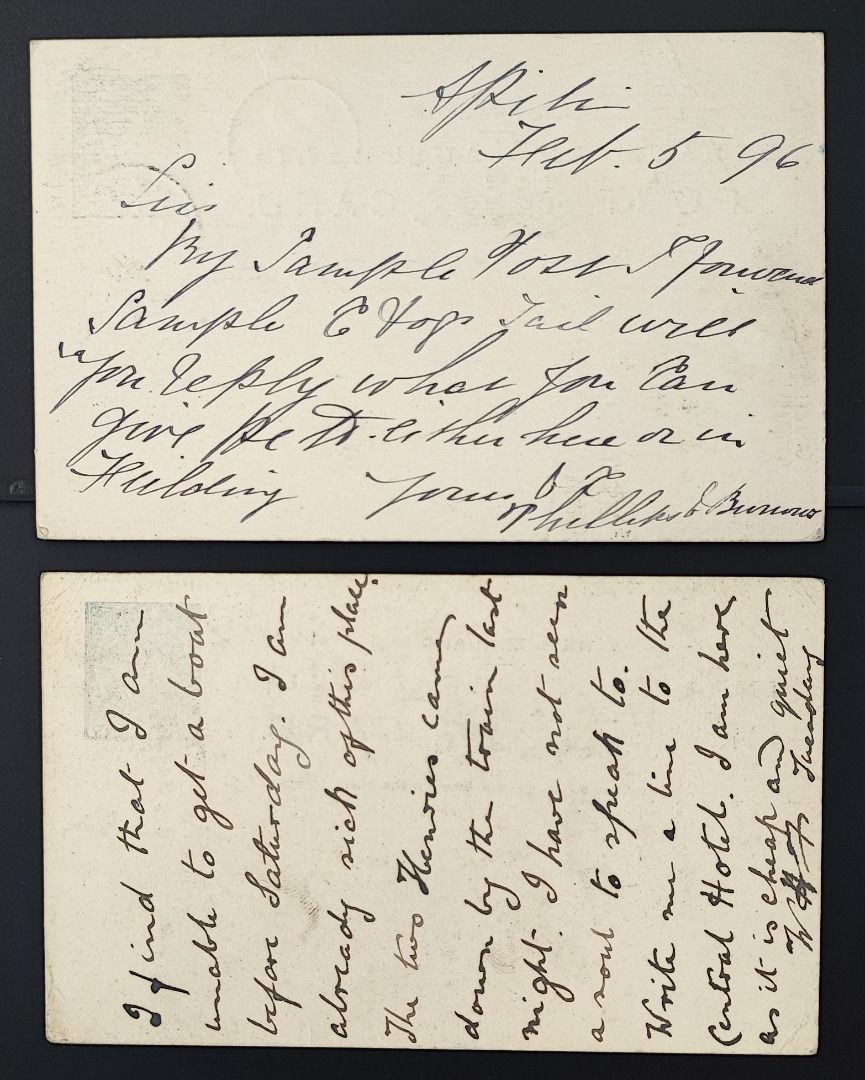 Apiti
Feb. 5 96
Sir
By Sample Post I forward
Sample C Hogs Tail will
you reply what you can
give per lb. either here or in
Feilding Yours &c
Phillips & Burrows
I find that I am
unable to get a boat
before Saturday. I am
already sick of this place.
The two Henries came
down by the train last
night. I have not seen
a soul to speak to.
Write me a line to the
Central Hotel. I am here
as it is cheap and quiet
Tuesday